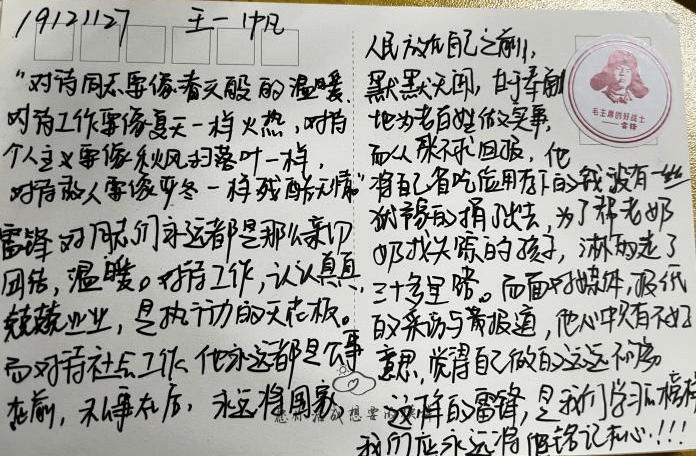 19121127 王一帆
"对待同志要像春天般的温暖,
对待工作要像夏天一样火热,对待
个人主义要像秋风扫落叶一样,
对待敌人要像严冬一样残酷无情"
雷锋对同志们永远都是那么亲切
团结,温暖。对待工作,认认真真,
兢兢业业,是执行力的天花板。
而对待社会工作,他永远都是公事
在前,私事在后,永远将国家
人民放在自己之前,
默默无闻,甘于奉献
地为老百姓做实事,
而从来不求回报,他
将自己省吃俭用存下的钱没有一丝
犹豫的捐了出去,为了帮老奶
奶找失散的孩子,淋雨走了
三十多里路。而面对媒体,报纸
的采访与报道,他心中只有不好
意思,觉得自己做的远远不够
这样的雷锋,是我们学习的榜样
我们应永远将他铭记在心!!!
毛主席的好战士
——雷锋